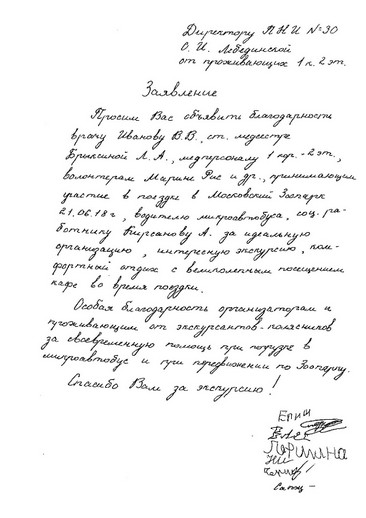 Директору ПНИ №30
О. И. Лебединской
от проживающих 1 к. 2 эт.
Заявление
Просим Вас объявить благодарность
врачу Иванову В.В., ст. медсестре
Брыксиной Л.А., медперсоналу 1 кор.-2 эт.,
волонтерам Марине Рис и др., принимающим
участие в поездке в Московский Зоопарк
21.06.18 г, водителю микроавтобуса, соц. ра-
ботнику Бирсанову А. за идеальную
организацию, интересную экскурсию, ком-
фортный отдых с великолепным посещением
кафе во время поездки.
Особая благодарность организаторам и
проживающим от экскурсантов-колясников
за своевременную помощь при погрузке в
микроавтобус и при передвижении по Зоопарку.
Спасибо Вам за экскурсию!
Ларишна